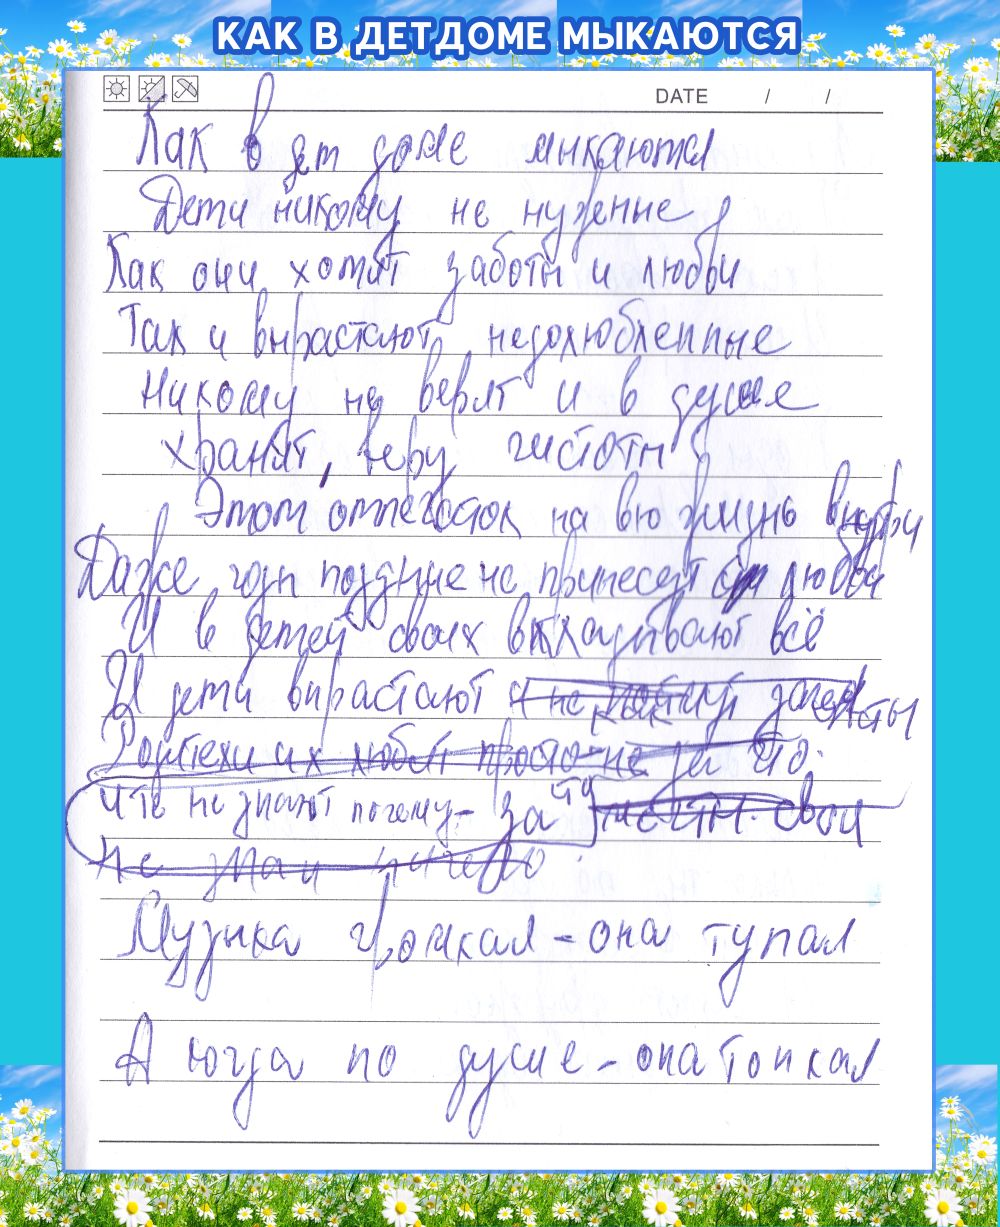 КАК В ДЕТДОМЕ МЫКАЮТСЯ
DATE / /
Как в дет доме мыкаются
Дети никому не нужные
Как они хотят заботы и любви
Так и вырастают недолюбленные
Никому не верят и в душе
хранят, веру чистоты
Этот отпечаток на всю жизнь внутри
Даже годы поздние не принесут любви
И в детей своих вкладывают всё
И дети вырастают
как
Родители их любят просто не за что.
что не знают почему - за что свои
не зная ничего.
Музыка громкая - она тупая
А когда по душе - она тонкая